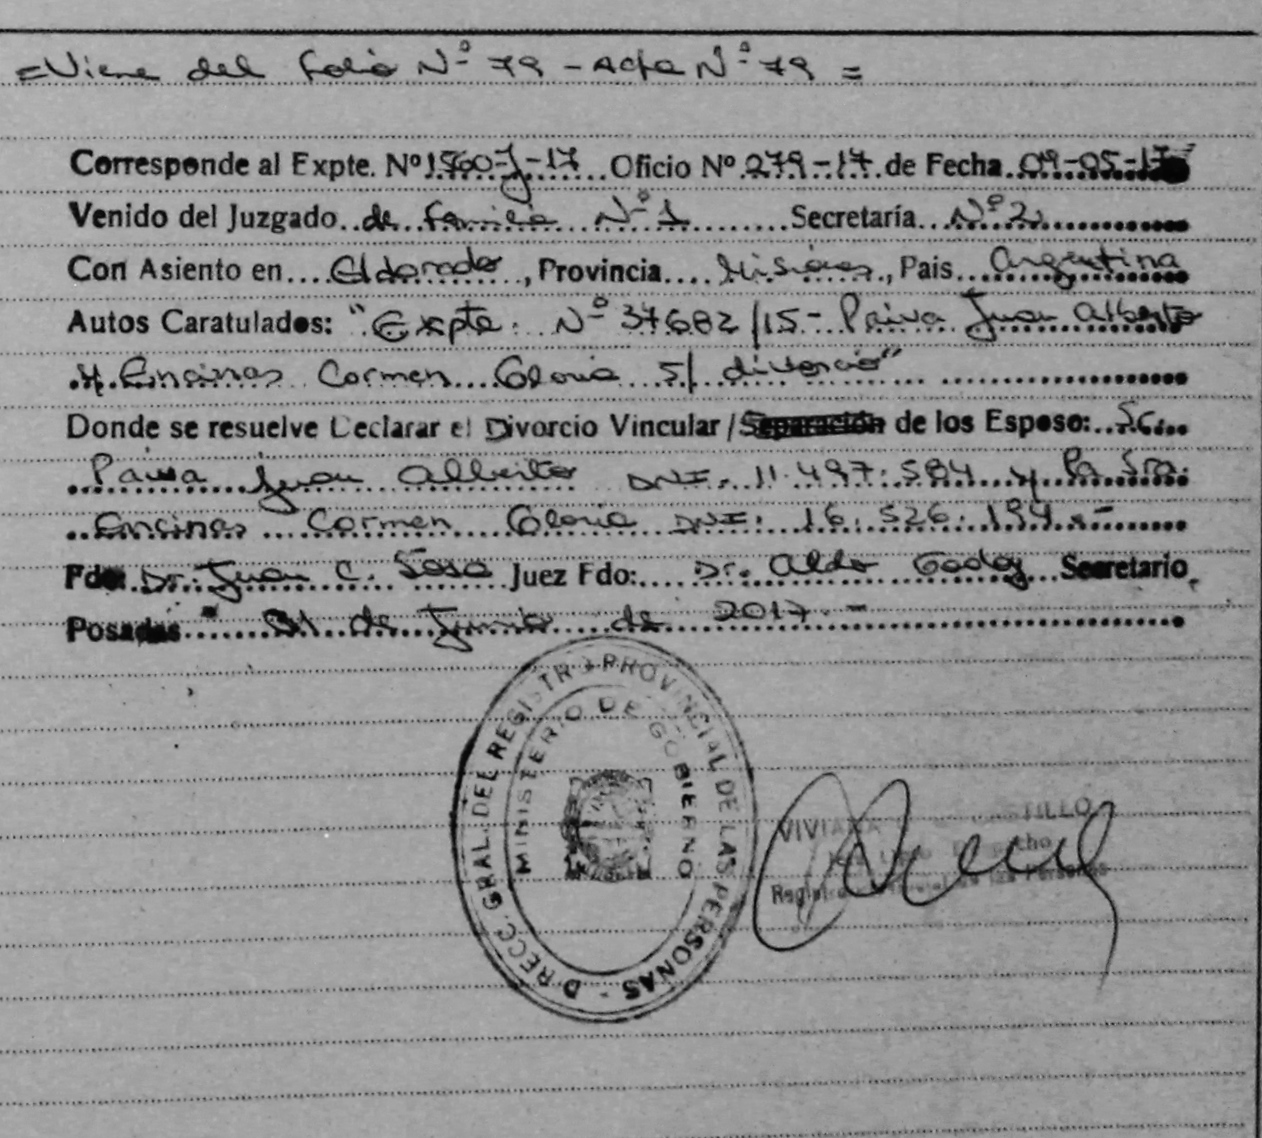 =Viene del folio Nº 79 - Acta Nº 79 =
Corresponde al Expte. Nº 15607-J-17 Oficio Nº 279-17 de Fecha 09-05-17
Venido del Juzgado de familia Nº 1 Secretaría Nº 2
Con Asiento en Eldorado, Provincia Misiones, Pais Argentina
Autos Caratulados: "Expte. Nº 37682/15- Paiva Juan Alberto
y Encinas Carmen Gloria s/ divorcio"
Donde se resuelve Declarar el Divorcio Vincular/Separación de los Esposo: Sr.
Paiva Juan Alberto DNI. 11.497.584 y la Sra.
Encinas Carmen Gloria DNI: 16.526.194.-
Fdo: Dr. Juan C. Sosa Juez Fdo: Dr. Aldo Godoy Secretario
Posadas de Junio de 2017.-
DIRECC. GRAL. DEL REGISTRO PROVINCIAL DE LAS PERSONAS -
MINISTERIO DE GOBIERNO
VIVIANA
Despacho
Registro Provincial de las Personas